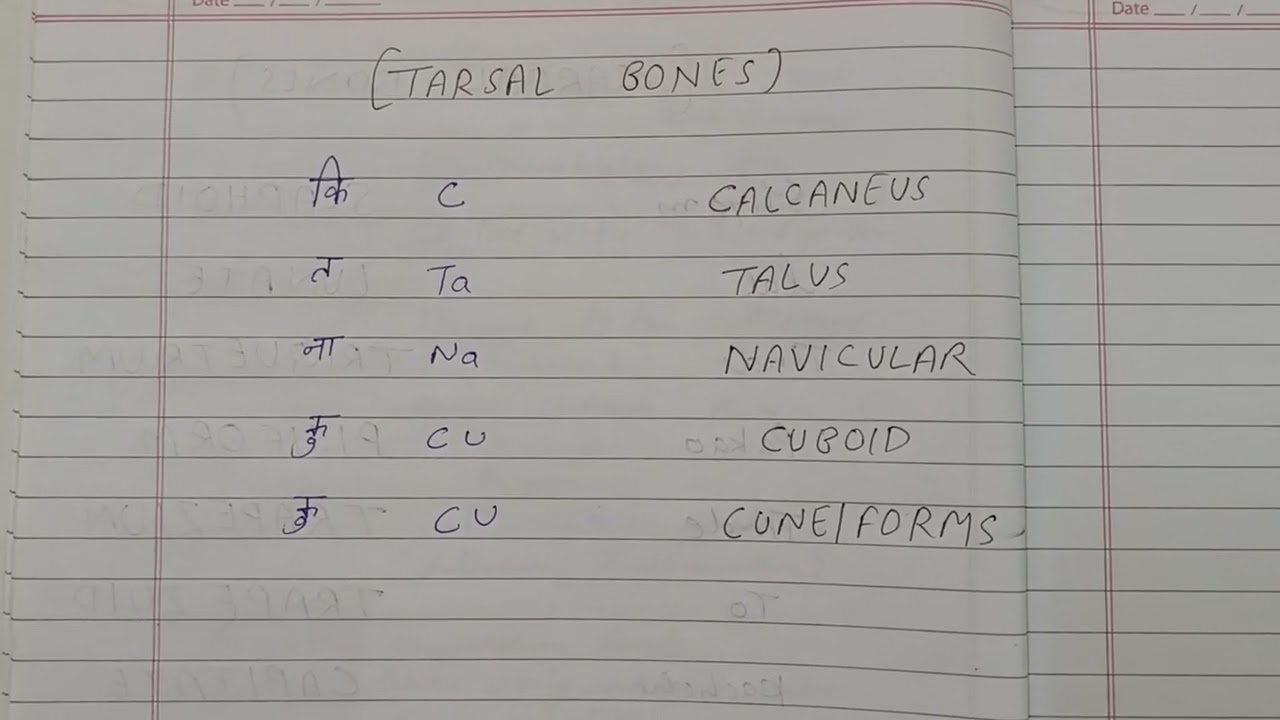 Date ___/___/_____
Date ___/___/
[TARSAL BONES]
कि C CALCANEUS
त Ta TALUS
ना Na NAVICULAR
कु CU CUBOID
कु CU CUNEIFORMS